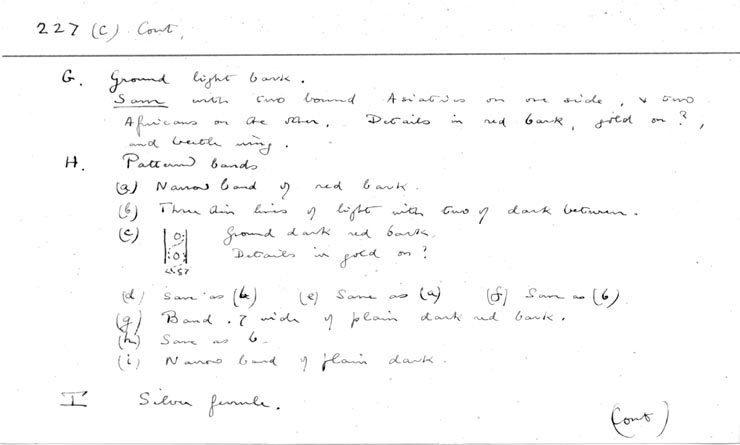 227 (c) Cont,
G. Ground light bark.
Sam with two bound Asiatics on one side, & two
Africans on the other. Details in red bark, gold on ?,
and beetle wing.
H. Patterned bands
(a) Narrow band of red bark.
(b) Three thin lines of light with two of dark between.
(c) Ground dark red bark.
Details in gold on ?
(d) Same as (b) (e) Same as (a) (f) Same as (b).
(g) Band .7 wide of plain dark red bark.
(h) Same as b.
(i) Narrow band of plain dark.
I Silver ferrule.
(Cont)